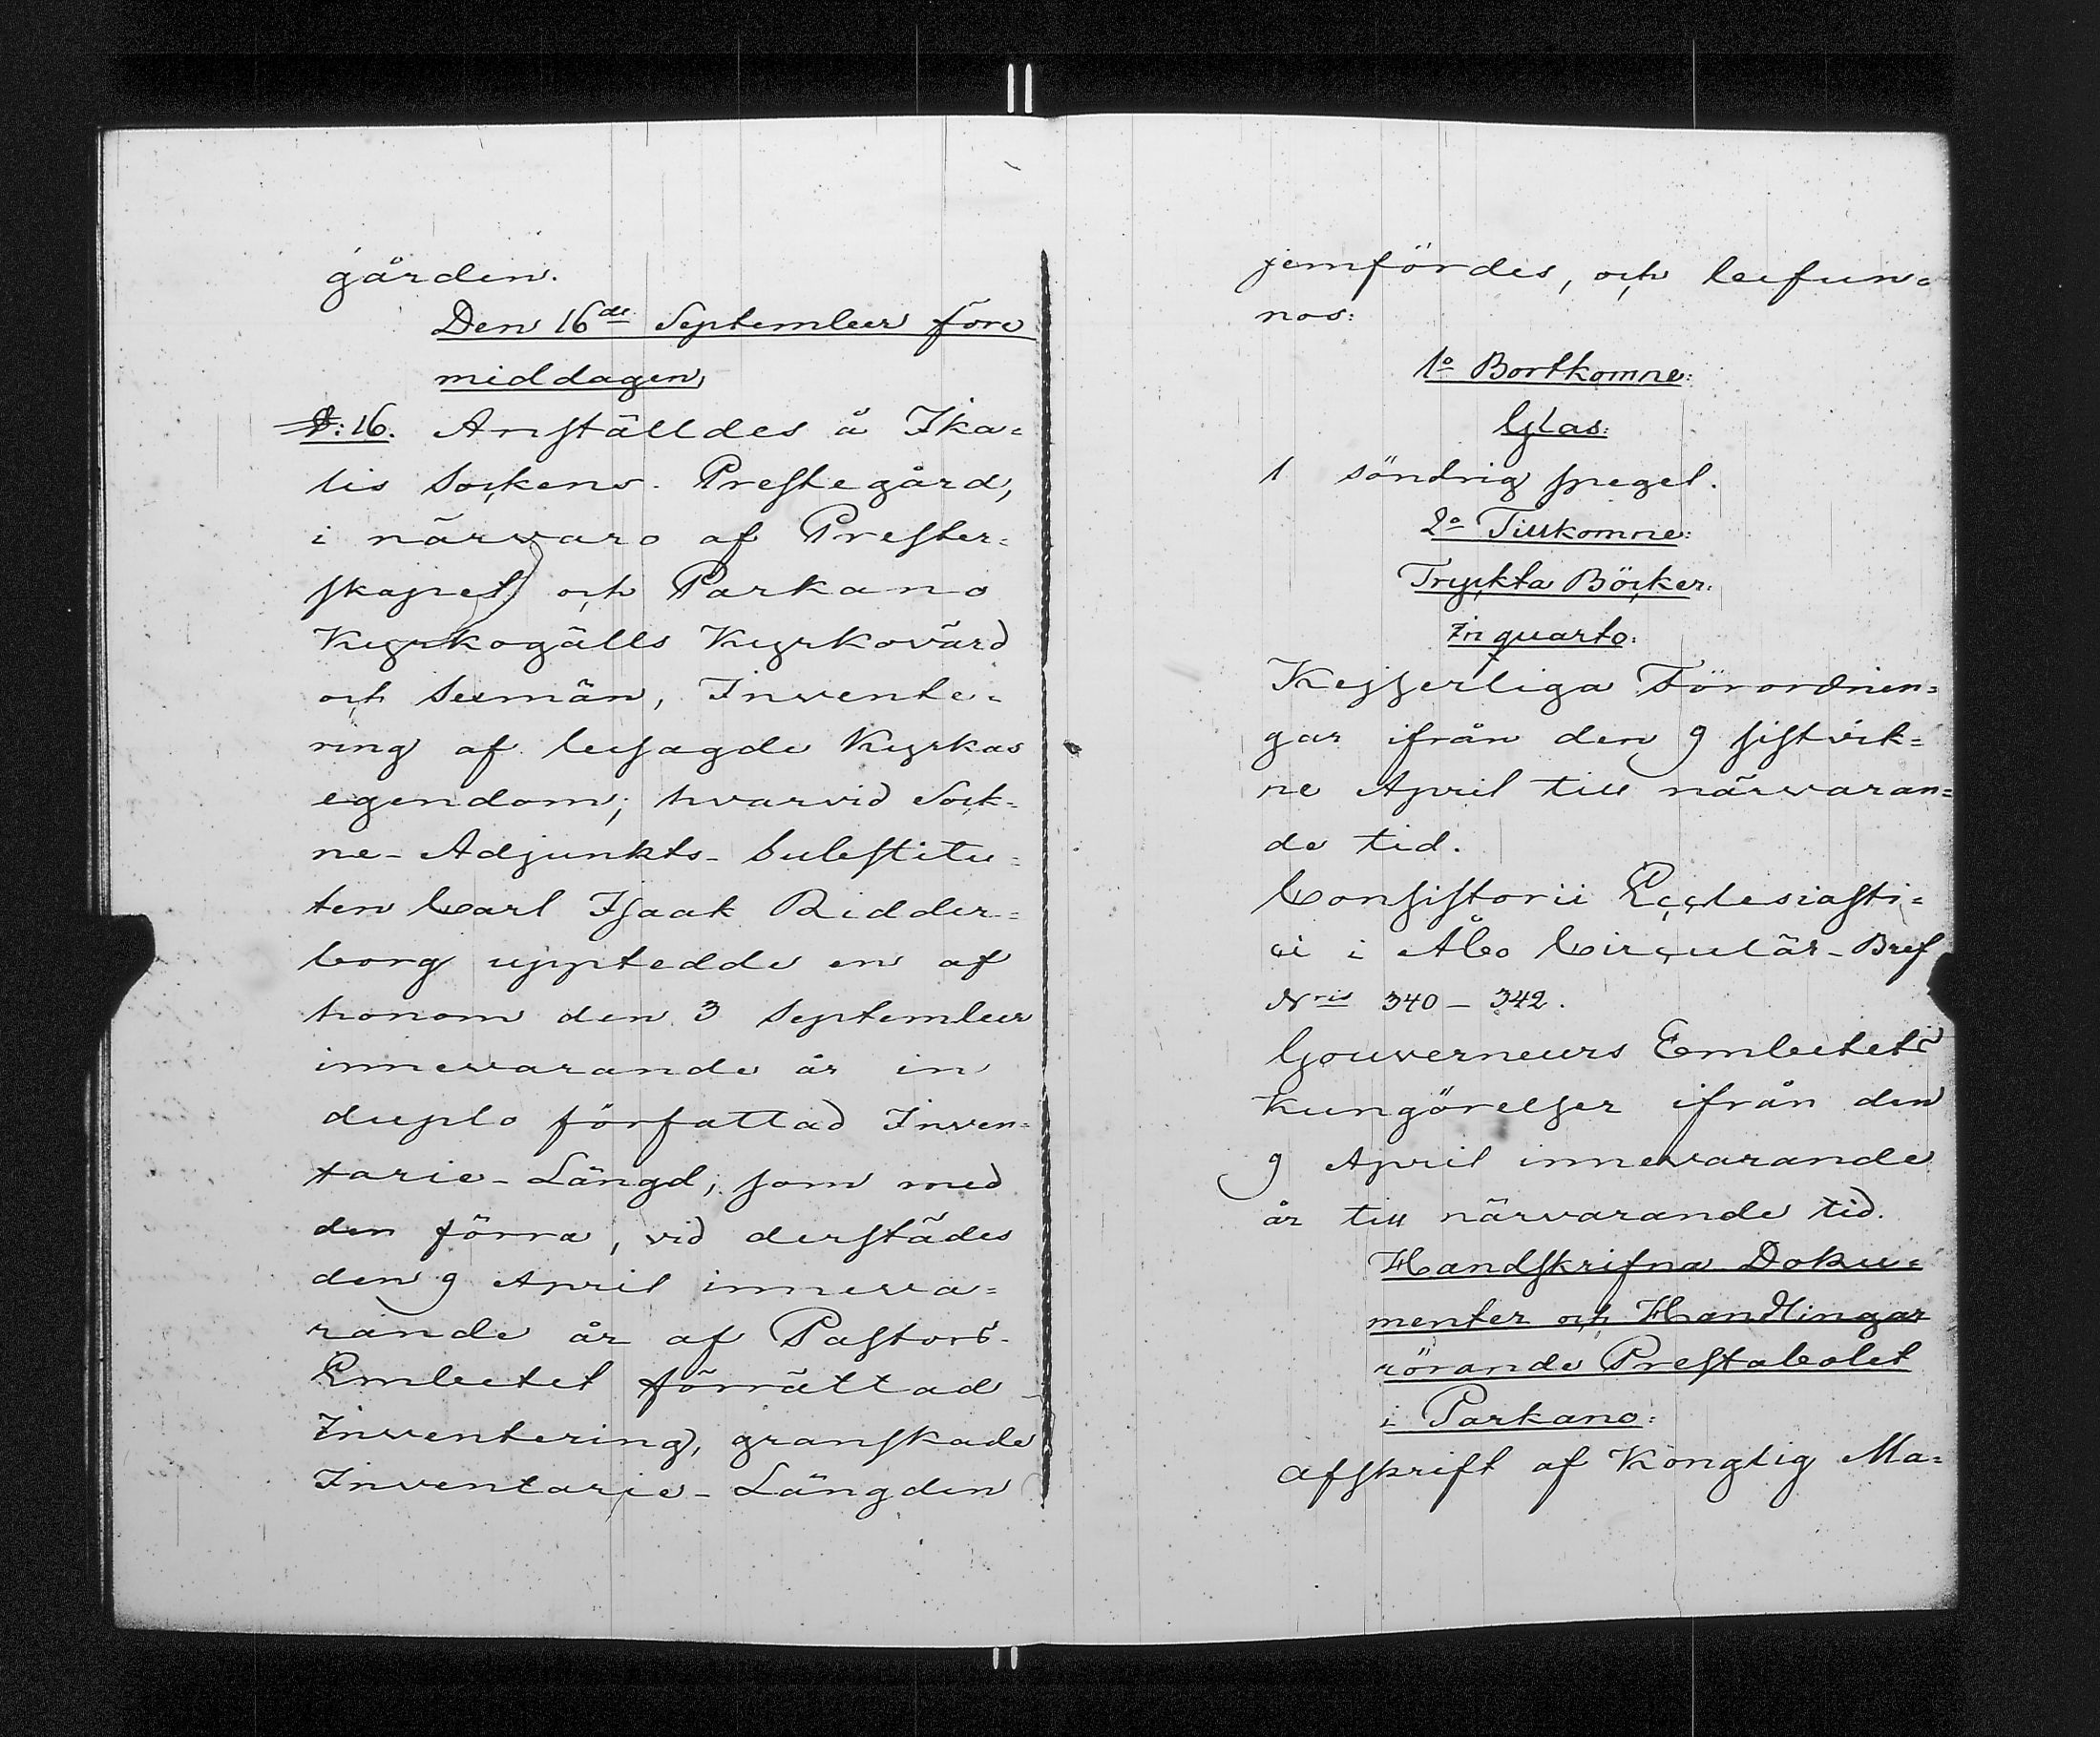 gården.
Den 16de September före
middagen,
§: 16. Anställdes å Ika=
lis Sockens Prestegård,
i närvaro af Prester=
skapet och Parkano
Kyrkogälls Kyrkovärd
och Sexmän, Invente=
ring af besagde Kyrkas
egendom; hvarvid Sock=
ne-Adjunkts-Substitu=
ten Carl Isaak Ridder=
borg upptedde en af
honom den 3 September
innevarande år in
duplo författad Inven=
tarie-Längd, som med
den förra, vid derstädes
den 9 April inneva=
rande år af Pastors-
Embetet förrättad
Inventering, granskade
Inventarie-Längden
jemfördes, och befun=
nos:
1o Bortkomne:
Glas:
1 söndrig spegel.
2o Tillkomne:
Tryckta Böcker:
In quarto:
Kejserliga Förordnin=
gar ifrån den 9 sistvik=
ne April till närvaran=
de tid.
Consistorii Ecclesiasti=
ci i Åbo Circulär-Bref
Nris 340-342.
Gouverneurs Embetets
Kungörelser ifrån den
9 April innevarande
år till närvarande tid.
Handskrifna Doku=
menter och Handlingar
rörande Prestabolet
i Parkano:
Afskrift af Konglig Ma=